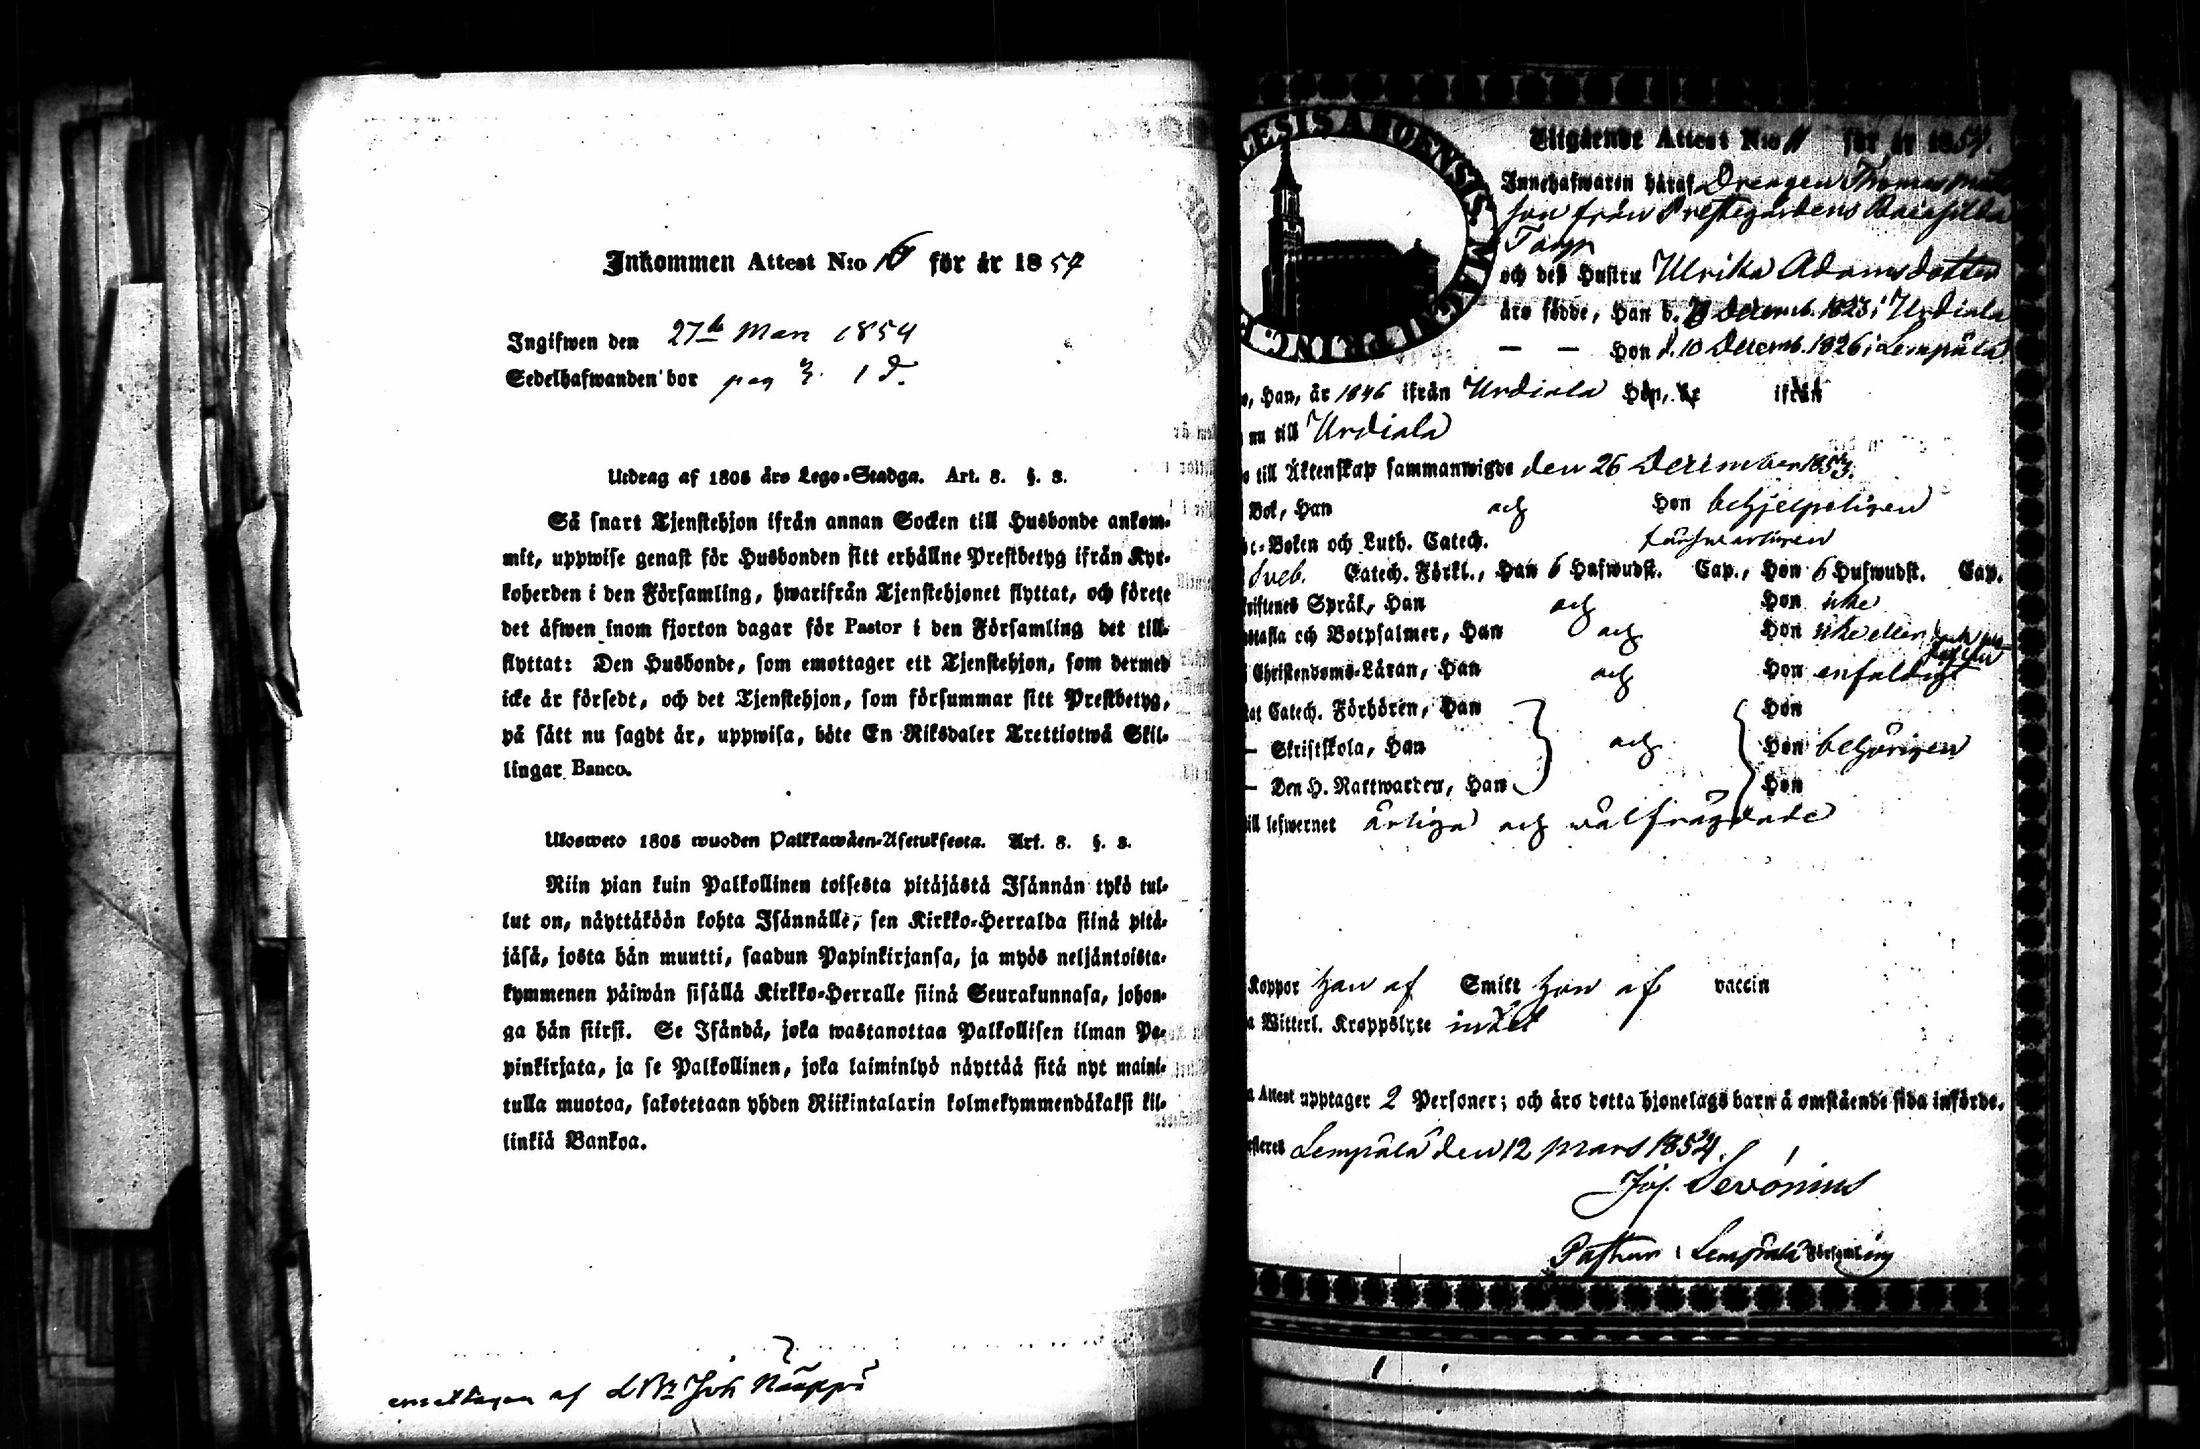 Inkommen Attest N:o 16 för år 1854
Ingifwen den 27de Mars 1854
Sedelhafwanden bor pag 3. 1 d.
Utdrag af 1805 års Lego-Stadga. Art. 8. §. 3.
Så snart Tjenstehjon ifrån annan Socken till Husbonde ankom-
mit, uppwise genast för Husbonden sitt erhållne Prestbetyg ifrån Kyr-
koherden i den Församling, hwarifrån Tjenstehjonet flyttat, och förete
det äfwen inom fjorton dagar för Pastor i den Församling det till-
flyttat: Den Husbonde, som emottager ett Tjenstehjon, som dermed
icke är försedt, och det Tjenstehjon, som försummar sitt Prestbetyg,
på sätt nu sagdt är, uppwisa, böte En Riksdaler Trettiotwå Skil-
lingar Banco.
Ulosweto 1805 wuoden Palkkawäen-Asetuksesta. Art. 8. §. 3.
Niin pian kuin Palkollinen toisesta pitäjästä Isännän tykö tul-
lut on, näyttäköön kohta Isännälle, sen Kirkko-Herralda siinä pitä-
jäsä, josta hän muutti, saadun Papinkirjansa, ja myös neljäntoista-
kymmenen päiwän sisällä Kirkko-Herralle siinä Seurakunnasa, johon-
ga hän siirsi. Se Isändä, joka wastanottaa Palkollisen ilman Pa-
pinkirjata, ja se Palkollinen, joka laiminlyö näyttää sitä nyt maini-
tulla muotoa, sakotetaan yhden Riikintalarin kolmekymmendäkaksi kil-
linkiä Bankoa.
af Joh Nääppä
CESIS ABOENSIS. MAGNI PRINC.
Utgående Attest N:o 11 för år 1854.
Innehafwaren häraf Drengen Thomas Matts
son från Prestegårdens
Torp
och deß Hustru Ulrika Adamsdotter
äro födde, Han d. Decemb. 1823 i Urdiala
— — Hon d. 10 Decemb. 1826 i Lempälä
, Han, år 1846 ifrån Urdiala Hon, år ifrån
nu till Urdiala
till Äktenskap sammanwigde den 26 December 1853.
Bok, Han och Hon behjelpeligen
-Boken och Luth. Catech. försvarligen
Sveb. Catech. Förkl., Han 6 Hufwudst. Cap., Hon 6 Hufwudst. Cap.
Språk, Han och Hon icke
och Botpsalmer, Han och Hon icke eller
Christendoms-Läran, Han och Hon enfaldigt
Catech. Förhören, Han Hon
— Skriftskola, Han och Hon behörigen
— Den H. Nattwarden, Han Hon
till lefwernet ärliga och välfrägdade
Koppor han af Smitt hon af vaccin
Witterl. Kroppslyte intet
Attest upptager 2 Personer; och äro detta hjonelags barn å omstående sida införde.
Lempälä den 12 Mars 1854.
Jos. Sevónius
Pastor i Lempälä Församling